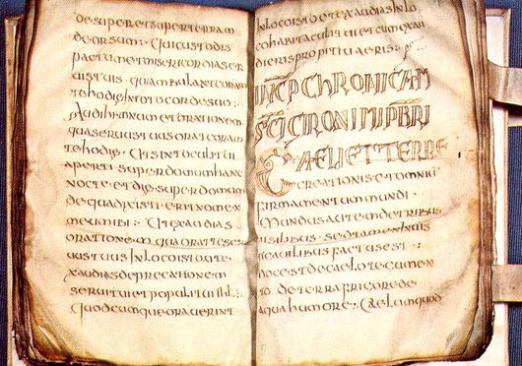 desuper et super terram
deorsum : Qui custodis
pactum et misericordiam ser
uis tuis qui ambulant coram
te hodie in toto corde suo :
Audi hymnum et orationem
quas seruus tuus orat coram
te hodie : Ut sint oculi tui
aperti super domum hanc
nocte et die super domum
de qua dixisti : erit nomen
meum ibi : Ut exaudias
orationem qua orat te ser
uus tuus in loco isto ut e
xaudias deprecationem
serui tui et populi tui isl :
Quodcumque orauerint
in loco isto et exaudias in lo
co habitaculi tui et cum exau
dieris propitiaeris :
INCP CHRONICAM
SCI GIRONIMI PBRI
CAELI ET TERRE
creationis et omni
firmamentum mundi
Mundus autem de tribus
uisibilibus sed tamen
factus est :
hoc est de caelo tegumen
to de terra frigore de
aqua humore : Caelum quod